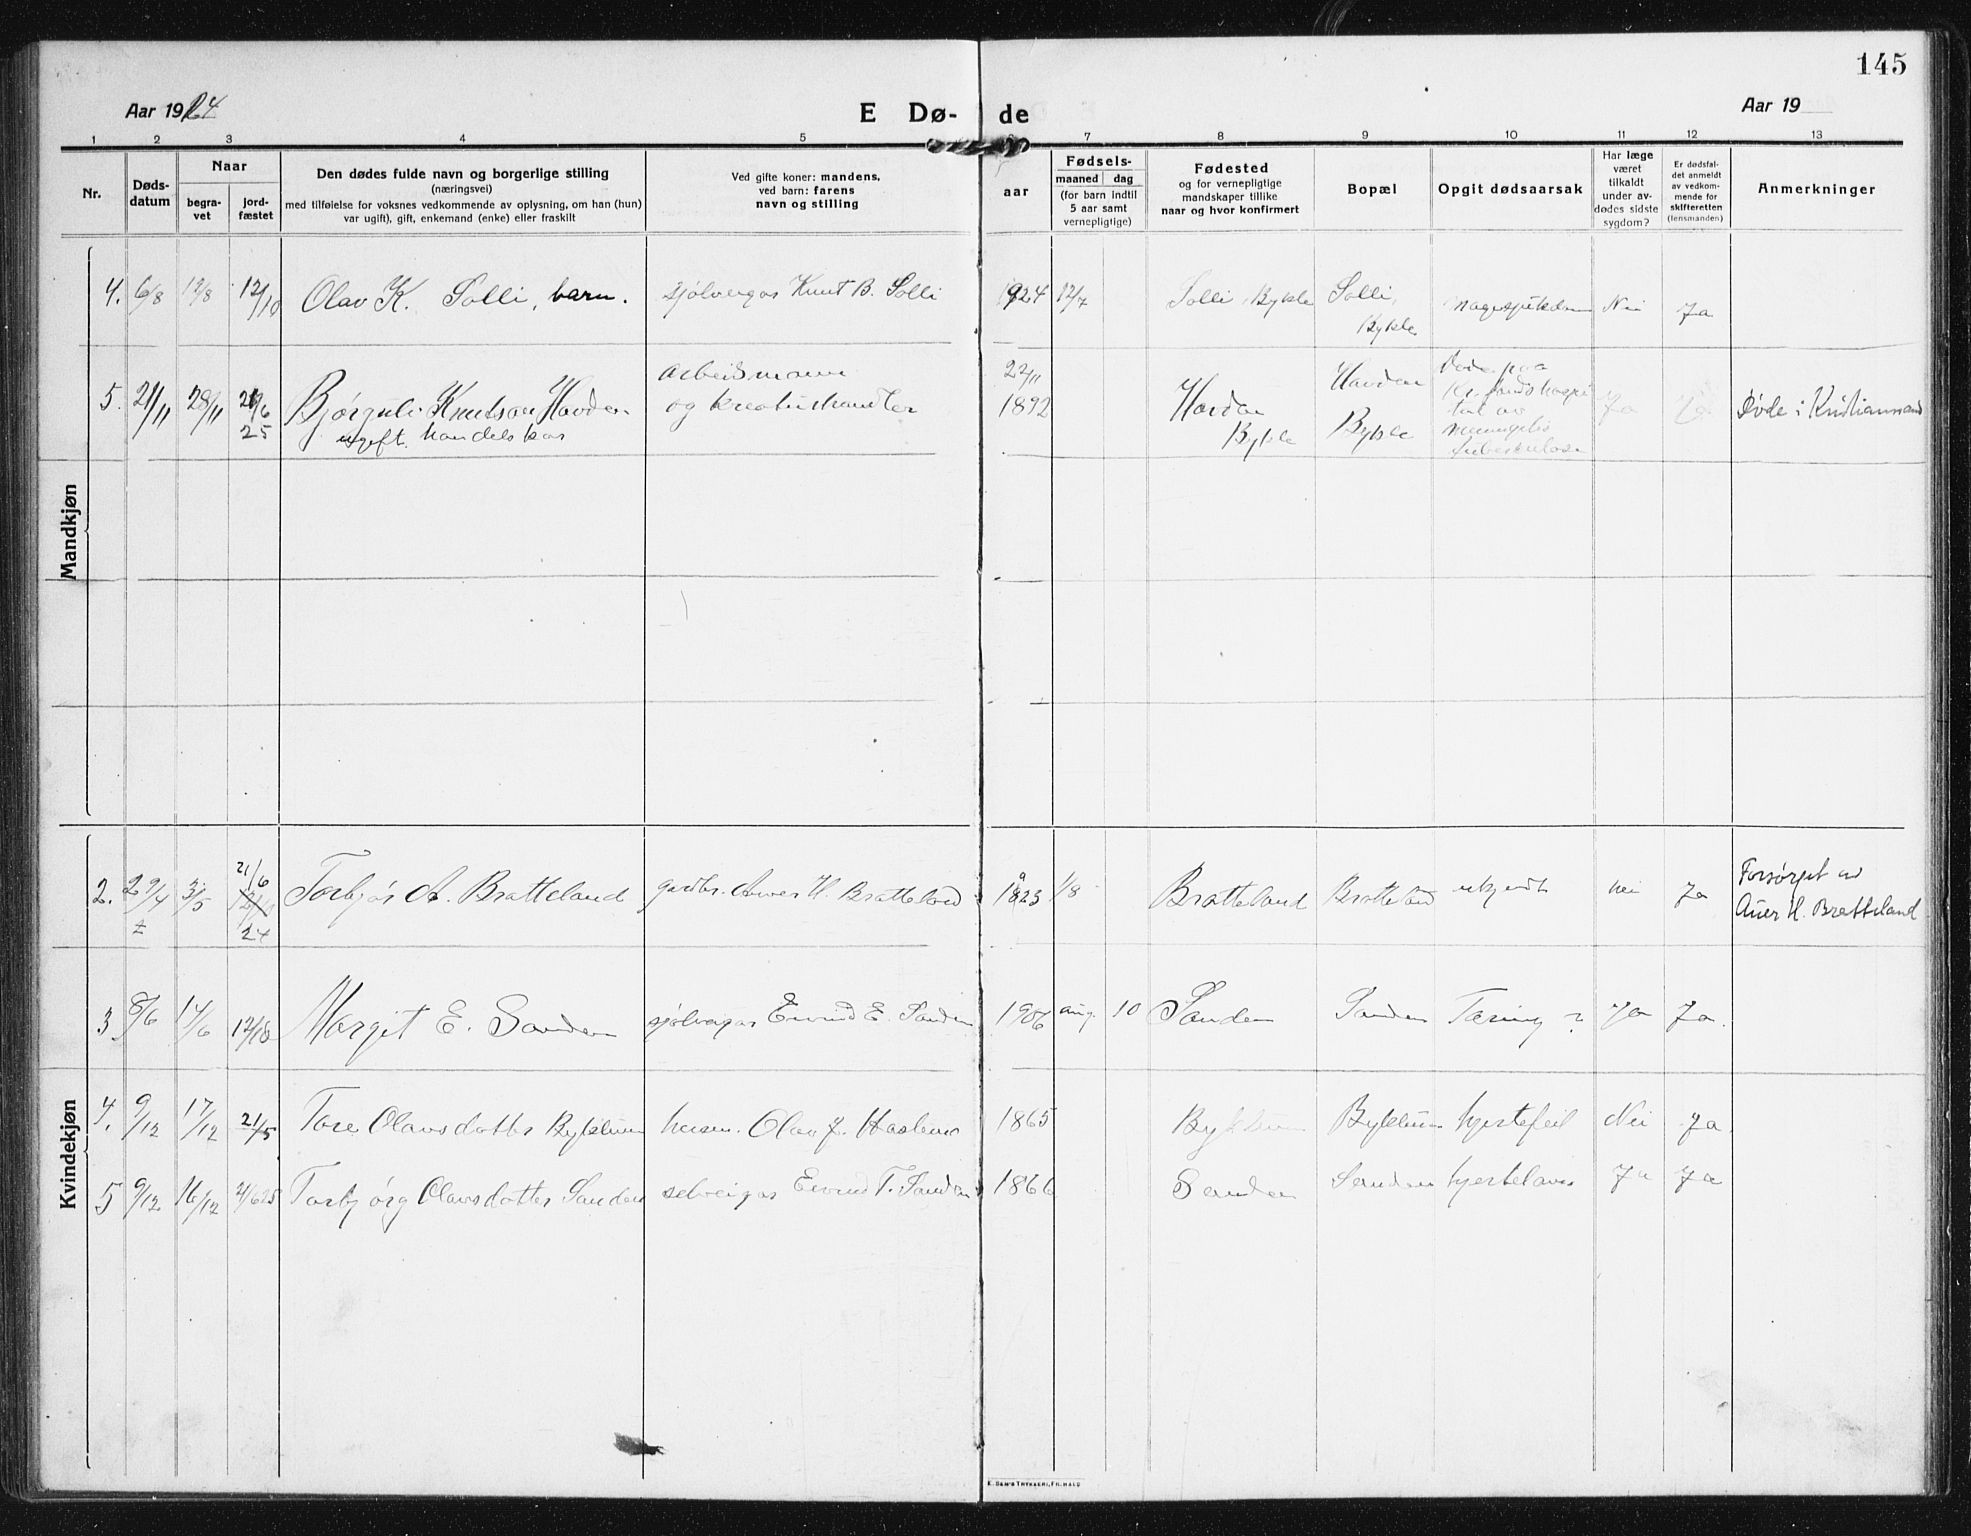 145
Aar 1924
E Dø- de
Aar 19
1 2 3 4 5 6 7 8 9 10 11 12 13
Nr.
Døds-
datum
Naar
begra-
vet
jord-
fæstet
Den dødes fulde navn og borgerlige stilling
(næringsvei)
med tilføielse for voksnes vedkommende av oplysning, om han (hun)
var ugift), gift, enkemand (enke) eller fraskilt
Ved gifte koner: mandens,
ved barn: farens
navn og stilling
aar
Fødsels-
maaned dag
(for barn indtil
5 aar samt
vernepligtige)
Fødested
og for vernepligtige
mandskaper tillike
naar og hvor konfirmert
Bopæl
Opgit dødsaarsak
Har læge
været
tilkaldt
under av-
dødes sidste
sygdom?
Er dødsfal-
det anmeldt
av vedkom-
mende for
skifteretten
(lensmanden)
Anmerkninger
Mandkjøn
4. 6/8 12/8 12/10 Olav K. Solli, barn. sjølveigar Knut B. Solli 1924 12/7 Solli, Bykle Solli, Bykle Nei Ja
5. 21/11 28/11 21/6 25 Bjørgulv Knutson Hovden
ugift. handelskar
arbeidsmann
og kreaturhandler
22/11
1892
Hovden
Bykle
Hovden
Bykle
Døde paa
Kr.sands hospi
tal av
meningitis
tuberkulose
Ja Ja Døde i Kristianssand
Kvindekjøn
2. 29/4 3/5 21/6 24 Torbjør A. Bratteland gardbr. Auver H. Bratteland 1823 1/8 Bratteland Bratteland ukjendt nei Ja
Forsørget av
Auer H. Bratteland
3 8/6 14/6 12/10 Margit E. Sanden sjølveigar Eivind E. Sanden 1906 aug. 10 Sanden Sanden Tæring ? Ja Ja.
4. 9/12 17/12 21/5 Tore Olavsdotter Byklum Olav J. 1865 Byklum Byklum hjertefeil Nei Ja
5 9/12 16/12 21/6 25 Torbjørg Olavsdotter Sanden selveigar Eivind T. Sanden 1866 Sanden Sanden Ja Ja
E. SEM'S TRYKKERI, FR.HALD